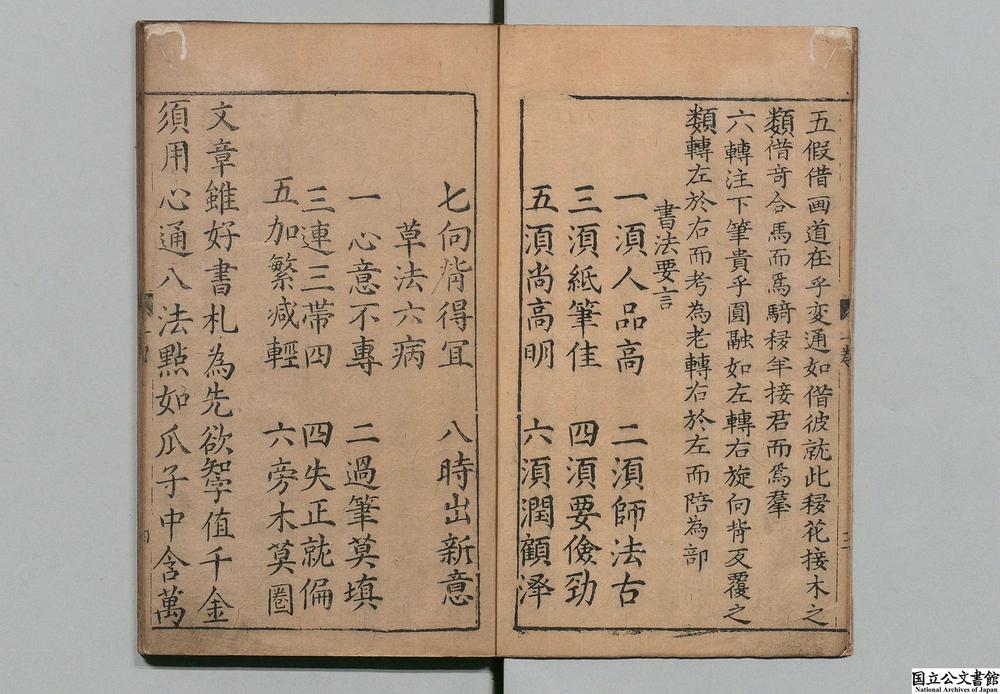 五假借画道在乎変通如借彼就此移花接木之
類借竒合馬而爲騎移羊接君而爲羣
六轉注下筆貴乎圓融如左轉右旋向背反覆之
類轉左於右而考為老轉右於左而陪為部
書法要言
一須人品高 二須師法古
三須紙筆佳 四須要儉勁
五須尚高明 六須潤顧泽
七向背得冝 八時出新意
草法六病
一心意不專 二過筆莫填
三連三帯四 四失正就偏
五加繁减輕 六旁木莫圏
文章雖好書札為先欲知字值千金
須用心通八法點如瓜子中含萬
一卷
国立公文書館
National Archives of Japan